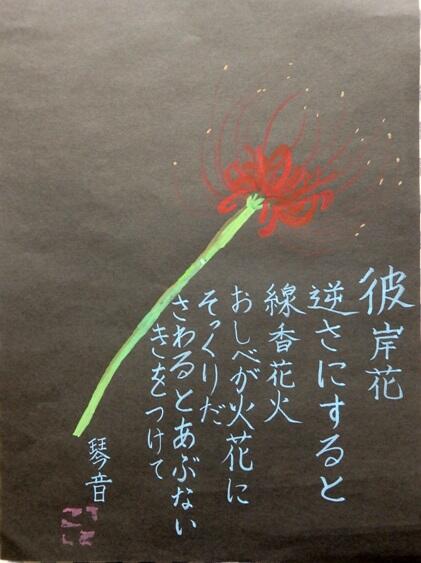 彼岸花
逆さにすると
線香花火
おしべが火花に
そっくりだ
さわるとあぶない
きをつけて
琴音